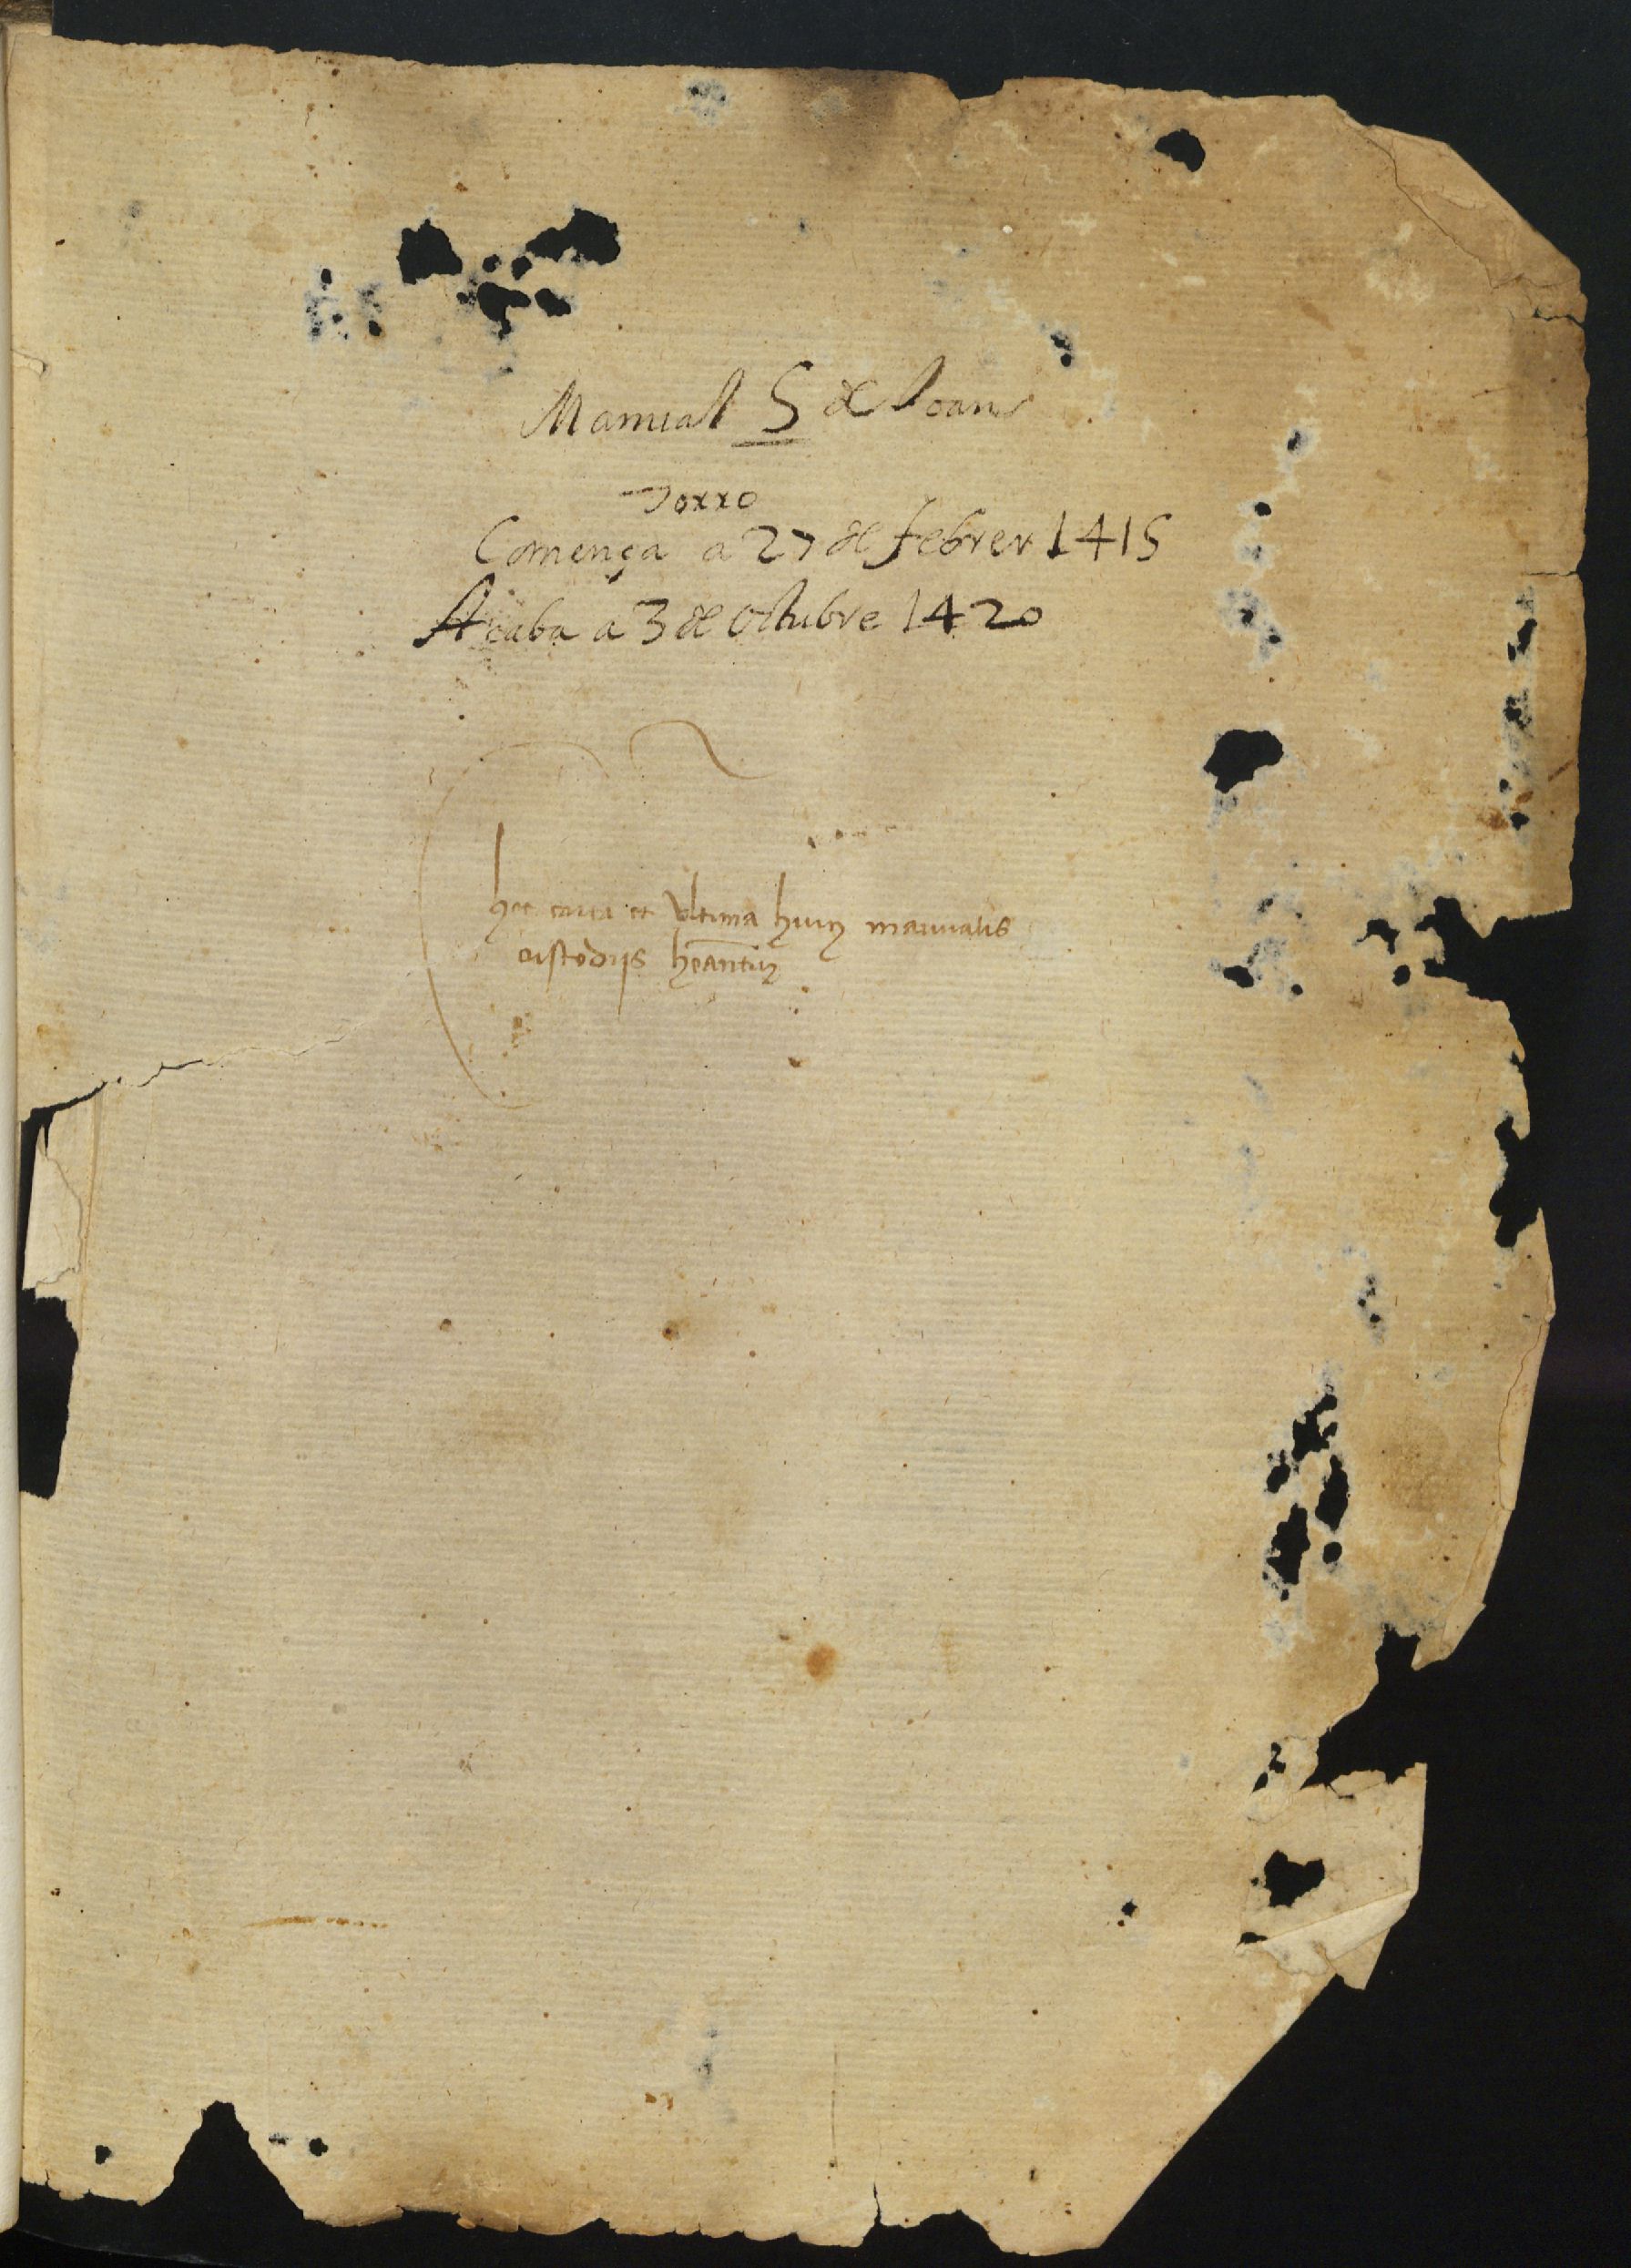 Manual 5 de Joan
Torro
Comença a 27 de febrer 1415
Acaba a 3 de octubre 1420
hec carta et ultima huius manualis
custodiis